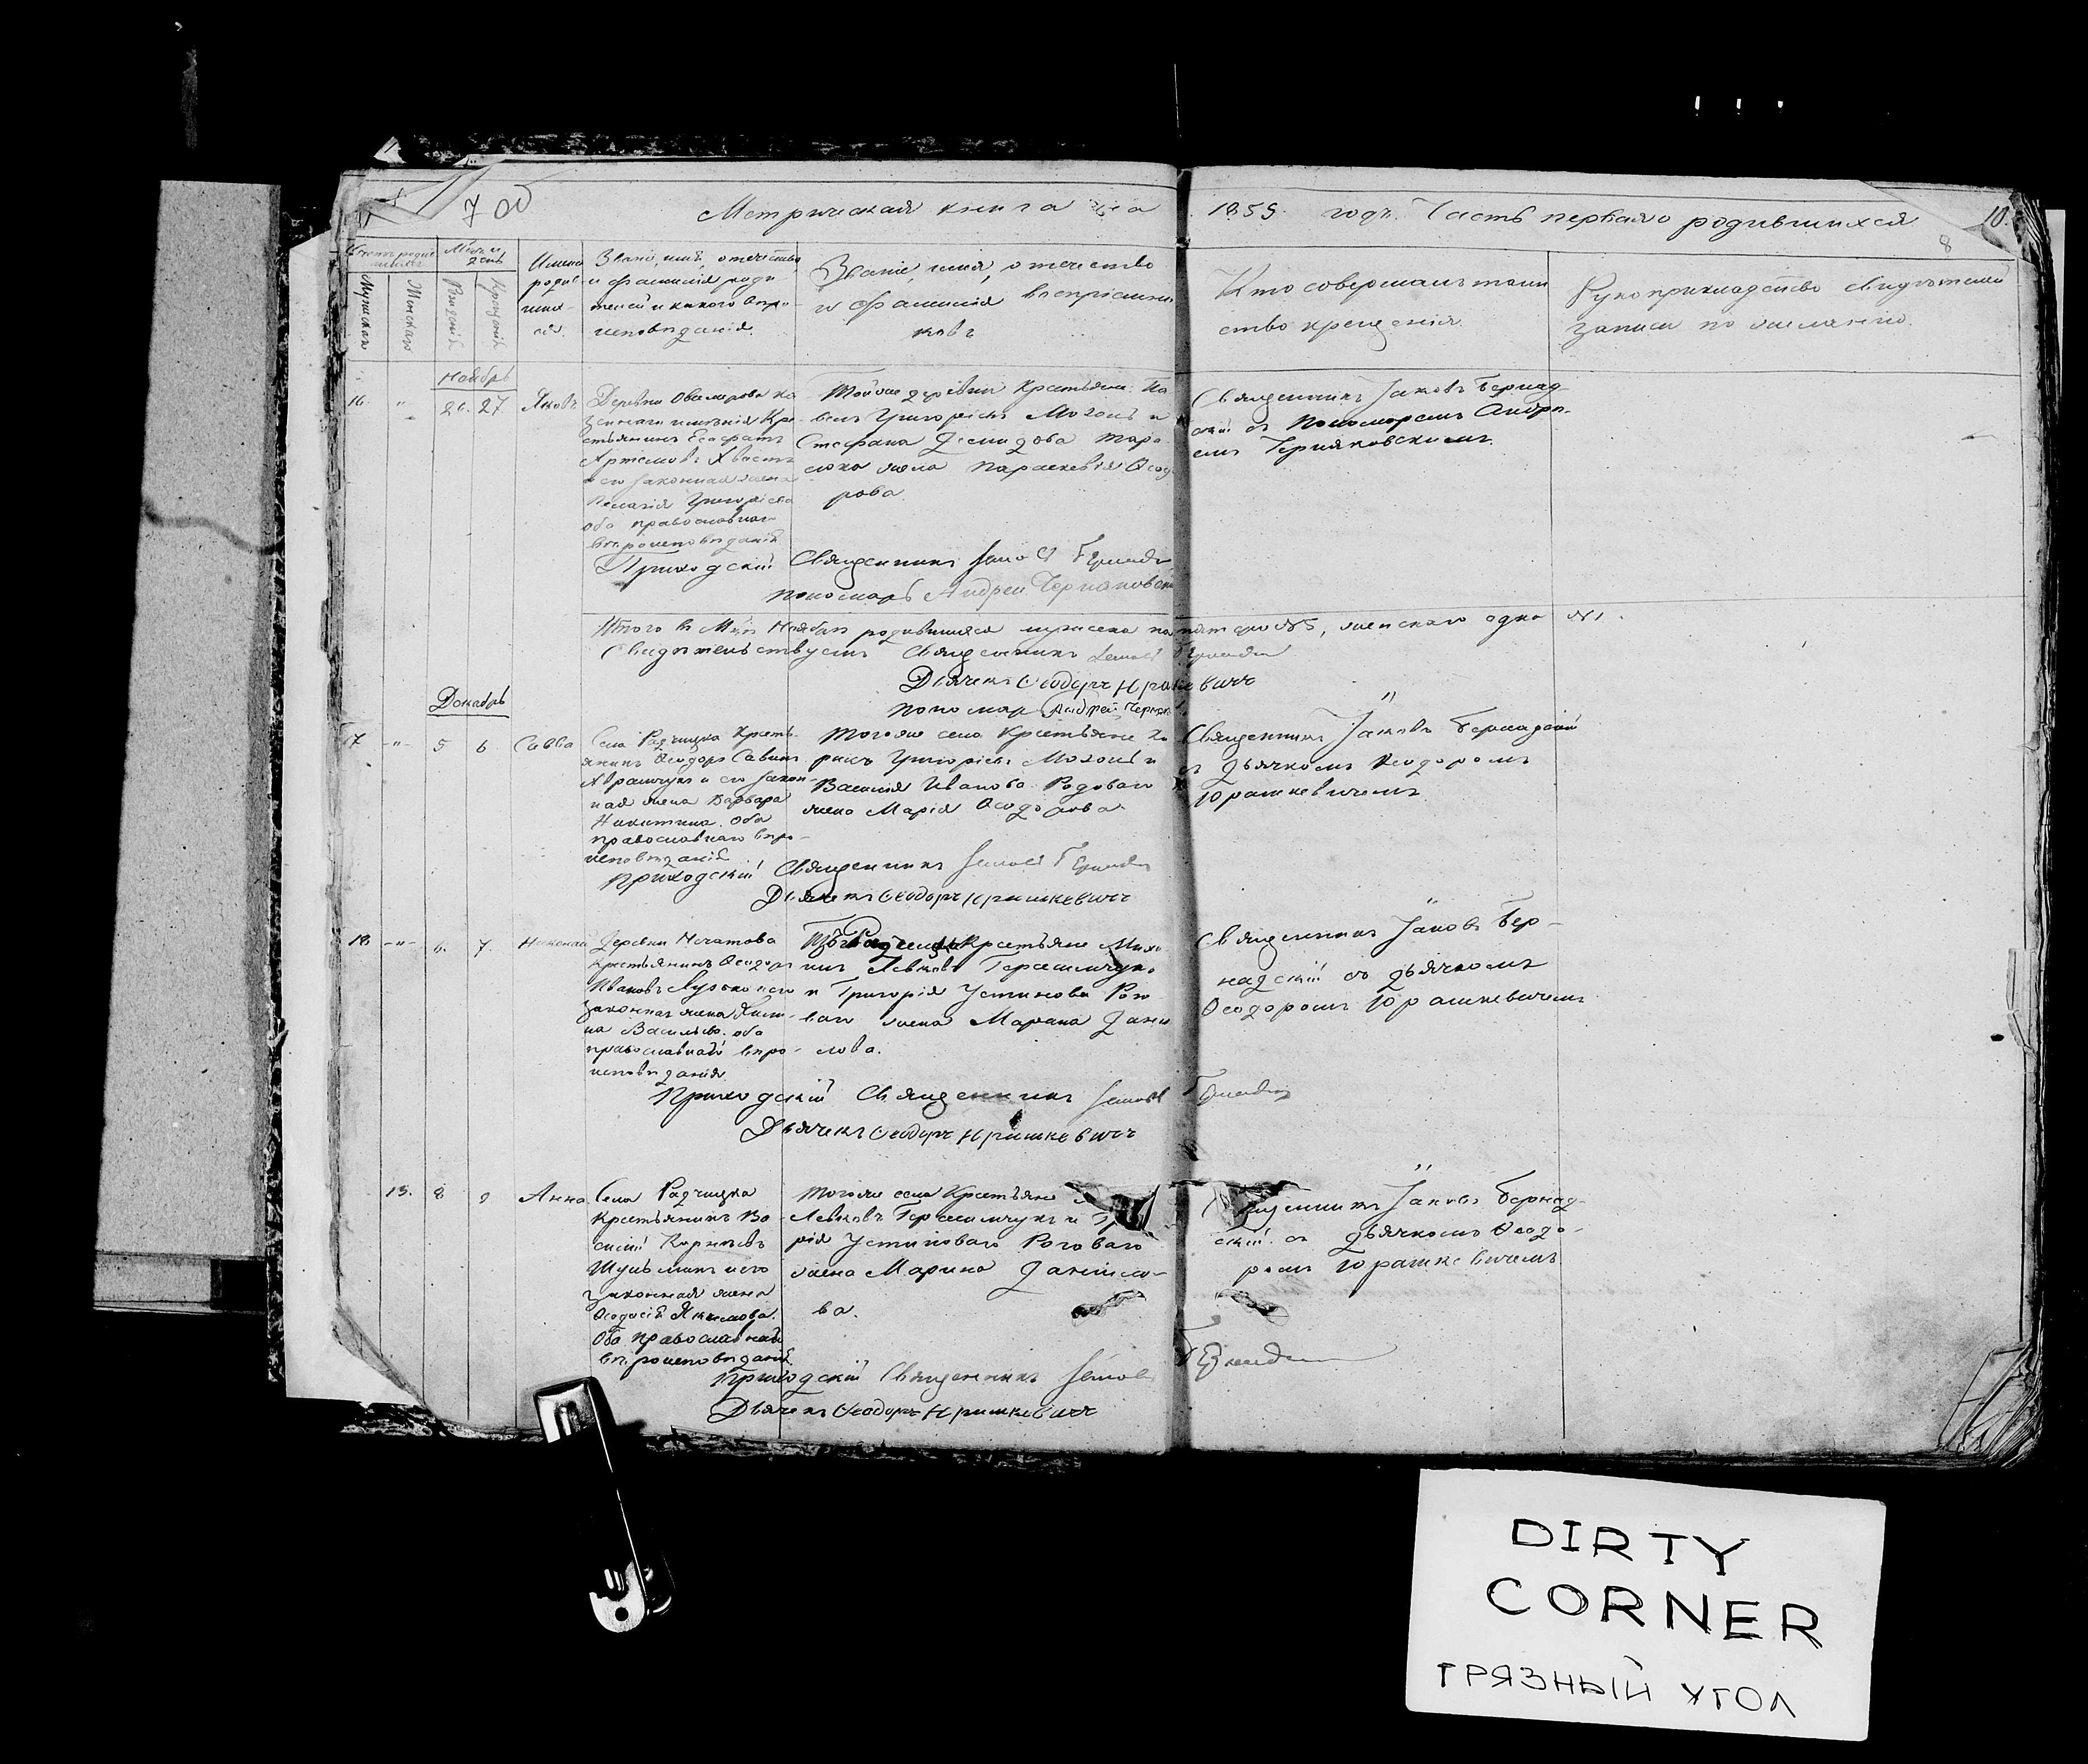 7 об
Метрическая книга на 1855 годъ. Часть первая о родившихся
10.
8
Мужеска
Женска
Рожденія
Крещенія
Имена
родив-
ших-
ся.
Званіе, имя, отечество
и фамилія роди
телей и какого вѣро-
исповѣданія.
Званіе, имя, отечество
и фамилія воспріемни
ковъ
Кто совершалъ таин
ство крещенія.
Рукоприкладство свидѣтелей
записи по желанію.
Ноябрь
16. " 26. 27. Яковъ
Деревни
Крестьянинъ
Артемовъ
и его законная жена
Григоріева
оба православнаго
вѣроисповѣданія
Тойже деревни Крестьяне Па
велъ Григоріевъ и
Стефана Демидова
жена Параскевія Ѳеод
рова
Священникъ Іаковъ Бернад
скій съ Пономаремъ Андре-
емъ Черняковскимъ.
Приходскій Священникъ
пономарь Андрей Черняковскій
Итого въ Ноябрѣ родившихся мужеска пола пять №5, женскаго одна №1.
Свидѣтельствуемъ Священникъ
Дьячекъ Ѳеодоръ Юрашкевичъ
пономарь Андрей
Декабрь
17 -"- 5 6 Савва
Села Радчицка Кресть-
янинъ Ѳеодоръ Савинъ
Аврамчукъ и его закон-
ная жена Варвара
Никитина. Оба
православнаго вѣро-
исповѣданія
Тогоже села Крестьяне
Григоріевъ и
Василія Иванова Роговаго
жена Марія Ѳеодорова
Священникъ Іаковъ Бернадскій
съ Дьячкомъ Ѳеодоромъ
Юрашкевичемъ
Приходскій Священникъ
Дьячекъ Ѳеодоръ Юрашкевичъ
18 -"- 6. 7. Николай
Деревни
крестьянинъ Ѳеодоръ
Ивановъ и его
законная жена
на Васильева. оба
православнаго вѣро-
исповѣданія
Крестьяне Миха
илъ Левковъ Герасимчукъ
и Григорія Устинова Рого
ваго жена Марина Дани
лова.
Священникъ Іаковъ Бер-
надскій съ дьячкомъ
Ѳеодоромъ Юрашкевичемъ
Приходскій Священникъ
Дьячекъ Ѳеодоръ Юрашкевичъ
13. 8 9 Анна
Села Радчицка
Крестьянинъ Ва
силій Корнѣевъ
и его
законная жена
Ѳеодосія Якимова.
Оба православнаго
вѣроисповѣданія.
Тогоже села Крестьяне
Левковъ Герасимчукъ и
рія Устиноваго Роговаго
жена Марина Данило-
ва.
Іаковъ Бернад-
скій съ Дьячкомъ Ѳеодо-
ромъ Юрашкевичемъ
Приходскій Священникъ
Дьячекъ Ѳеодоръ Юрашкевичъ
DIRTY
CORNER
ГРЯЗНЫЙ УГОЛ